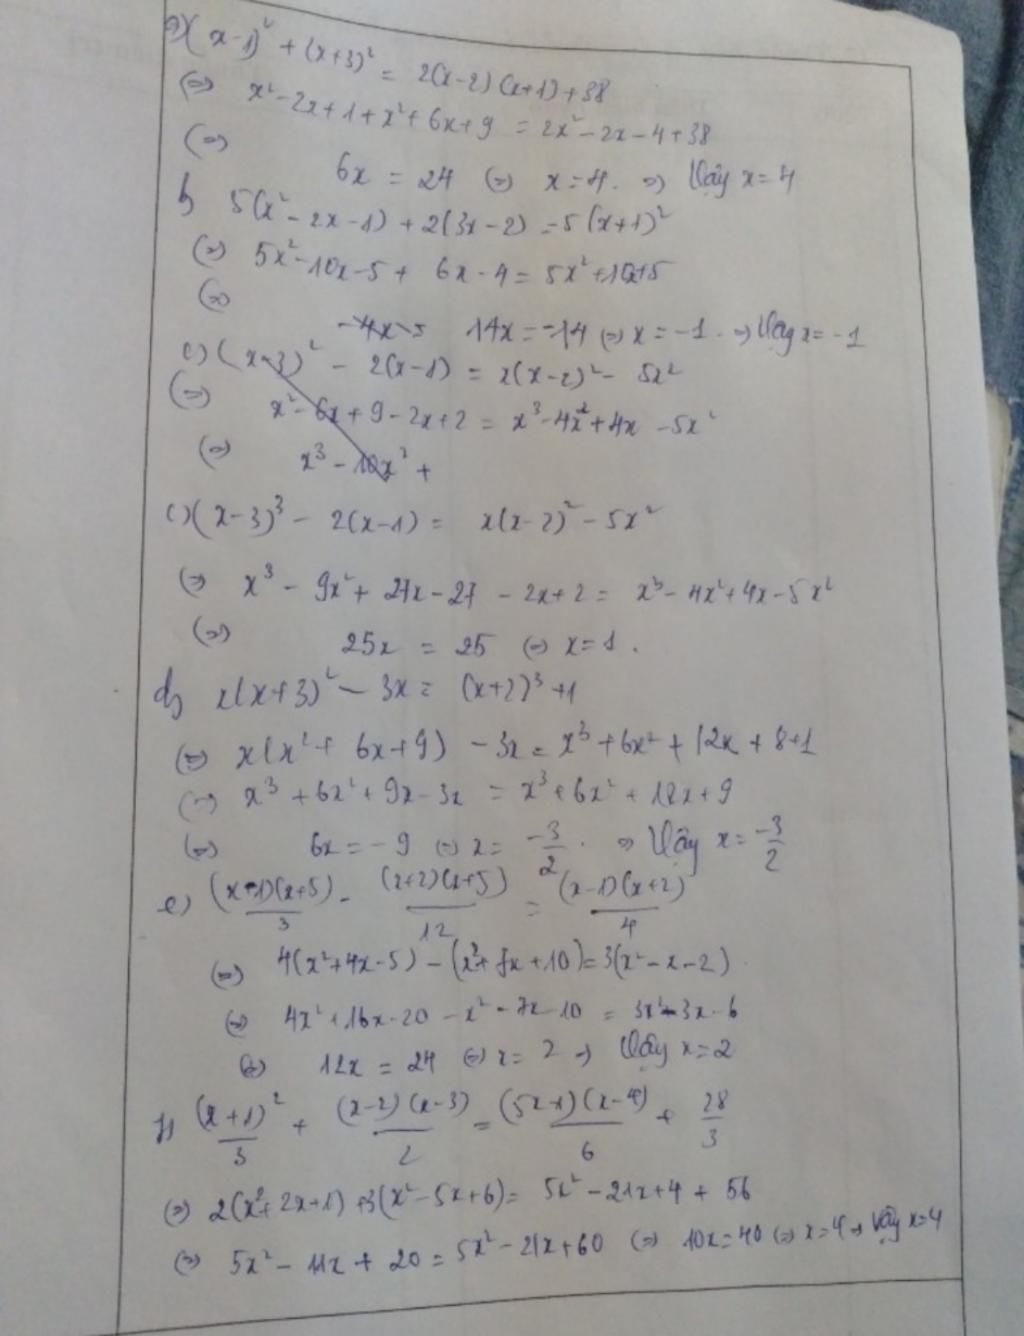 a) (x-1)² + (x+3)² = 2(x-2)(x+1)+38
(=) x²-2x+1+x²+6x+9 = 2x²-2x-4+38
(=) 6x = 24 (=) x=4. => Vậy x=4
b) 5(x²-2x-1) + 2(3x-2) = 5(x+1)²
(=) 5x²-10x-5 + 6x-4 = 5x²+10x+5
(=) -4x-5 14x = -14 (=) x = -1. => Vậy x = -1
c) (x-3)² - 2(x-1) = x(x-2)² - 5x²
(=) x²-6x+9-2x+2 = x³-4x²+4x-5x²
(=) x³-10x²+
c) (x-3)³ - 2(x-1) = x(x-2)² - 5x²
(=) x³-9x²+27x-27-2x+2 = x³-4x²+4x-5x²
(=) 25x = 25 (=) x=1.
d) x(x+3)² - 3x = (x+2)³+1
(=) x(x²+6x+9) - 3x = x³+6x²+12x+8+1
(=) x³+6x²+9x-3x = x³+6x²+12x+9
(=) 6x = -9 (=) x = -3/2. => Vậy x = -3/2
e) (x-1)(x+5)/3 - (x+2)(x+5)/12 = (x-1)(x+2)/4
(=) 4(x²+4x-5) - (x²+7x+10) = 3(x²-x-2)
(=) 4x²+16x-20-x²-7x-10 = 3x²-3x-6
(=) 12x = 24 (=) x = 2 => Vậy x=2
f) (x+1)²/3 + (x-2)(x-3)/2 = (5x-1)(x-4)/6 + 28/3
(=) 2(x²+2x+1)+3(x²-5x+6) = 5x²-21x+4+56
(=) 5x²-11x+20 = 5x²-21x+60 (=) 10x=40 (=) x=4 => Vậy x=4